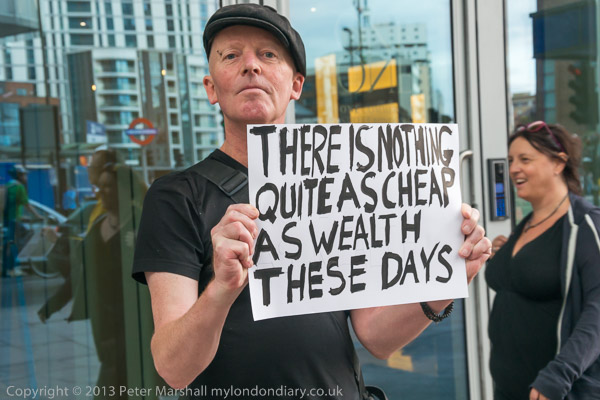 THERE IS NOTHING
QUITE AS CHEAP
AS WEALTH
THESE DAYS
Copyright © 2013 Peter Marshall mylondondiary.co.uk